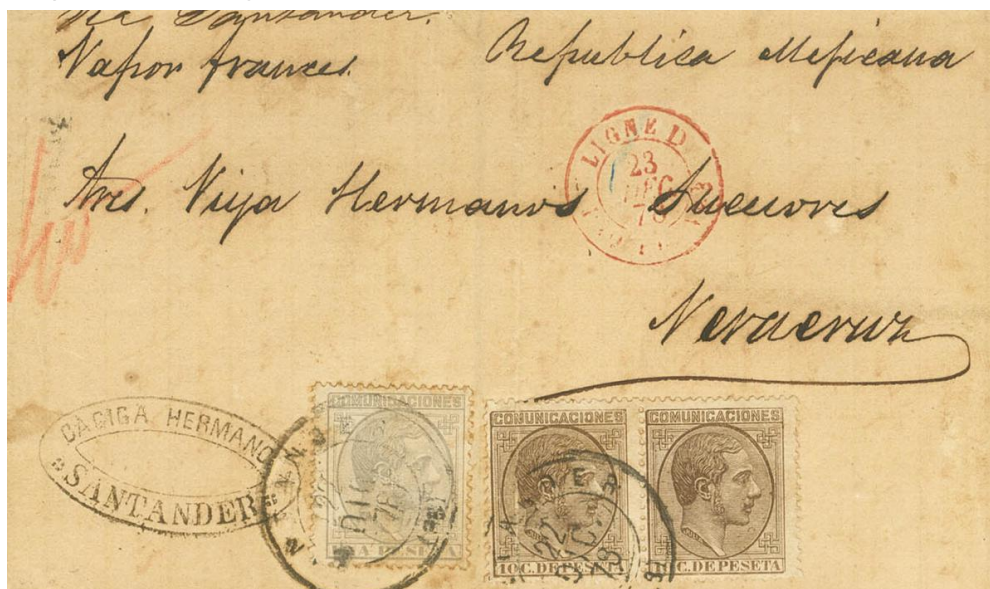 Via Santander.
Vapor frances.
Republica Mejicana
LIGNE D
23
DEC
78
Sres. Vieja Hermanos Sucesores
Veracruz
CAGIGA HERMANO
SANTANDER
COMUNICACIONES
UNA PESETA
COMUNICACIONES
10 C. DE PESETA
COMUNICACIONES
C. DE PESETA
22